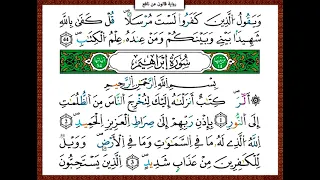 رواية قالون عن نافع
وَيَقُولُ الَّذِينَ كَفَرُوا لَسْتَ مُرْسَلًا ۚ قُلْ كَفَىٰ بِاللَّهِ
شَهِيدًا بَيْنِي وَبَيْنَكُمْ وَمَنْ عِندَهُ عِلْمُ الْكِتَابِ ۝٤٤
سُورَةُ إِبْرَاهِيمَ
بِسْمِ اللَّهِ الرَّحْمَٰنِ الرَّحِيمِ
أَلَٓر ۚ كِتَابٌ أَنزَلْنَاهُ إِلَيْكَ لِتُخْرِجَ النَّاسَ مِنَ الظُّلُمَاتِ
إِلَى النُّورِ ۝١ بِإِذْنِ رَبِّهِمْ إِلَىٰ صِرَاطِ الْعَزِيزِ الْحَمِيدِ ۝٢
اللَّهُ الَّذِي لَهُ مَا فِي السَّمَاوَاتِ وَمَا فِي الْأَرْضِ ۗ وَوَيْلٌ
لِلْكَافِرِينَ مِنْ عَذَابٍ شَدِيدٍ ۝٣ الَّذِينَ يَسْتَحِبُّونَ